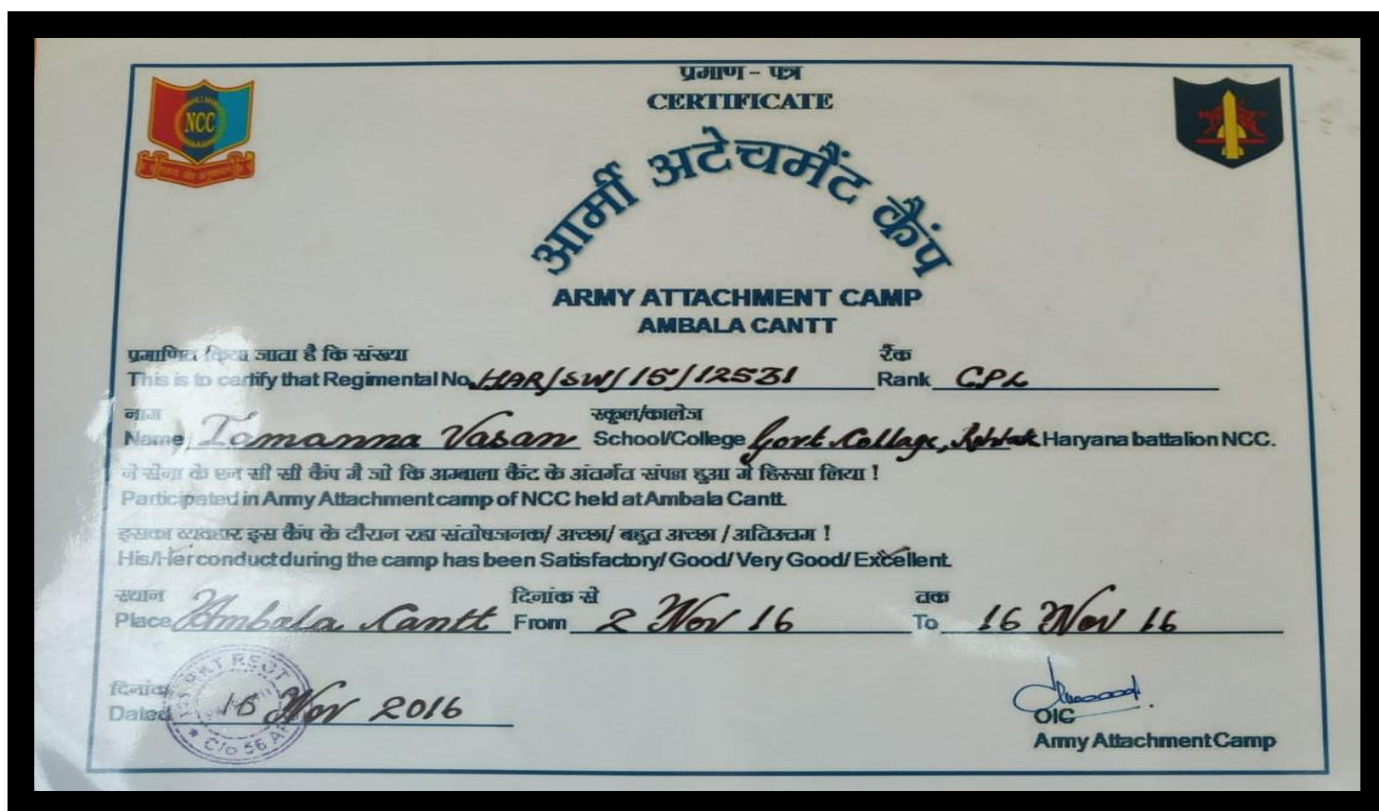 प्रमाण - पत्र
CERTIFICATE
NCC
आर्मी अटेचमैंट कैंप
ARMY ATTACHMENT CAMP
AMBALA CANTT
प्रमाणित किया जाता है कि संख्या रैंक
This is to certify that Regimental No. HAR/SW/15/12531 Rank CPL
नाम स्कूल/कालेज
Name Tamanna Vasan School/College Govt. College, Rohtak Haryana battalion NCC.
ने सेना के एन सी सी कैंप मै जो कि अम्बाला कैंट के अंतर्गत संपन्न हुआ में हिस्सा लिया !
Participated in Army Attachment camp of NCC held at Ambala Cantt.
इसका व्यवहार इस कैंप के दौरान रहा संतोषजनक/ अच्छा/ बहुत अच्छा / अतिउत्तम !
His/Her conduct during the camp has been Satisfactory/ Good/ Very Good/ Excellent.
स्थान दिनांक से तक
Place Ambala Cantt From 2 Nov 16 To 16 Nov 16
दिनांक
Dated 16 Nov 2016
REGT
C/o 56 A
OIC
Army Attachment Camp